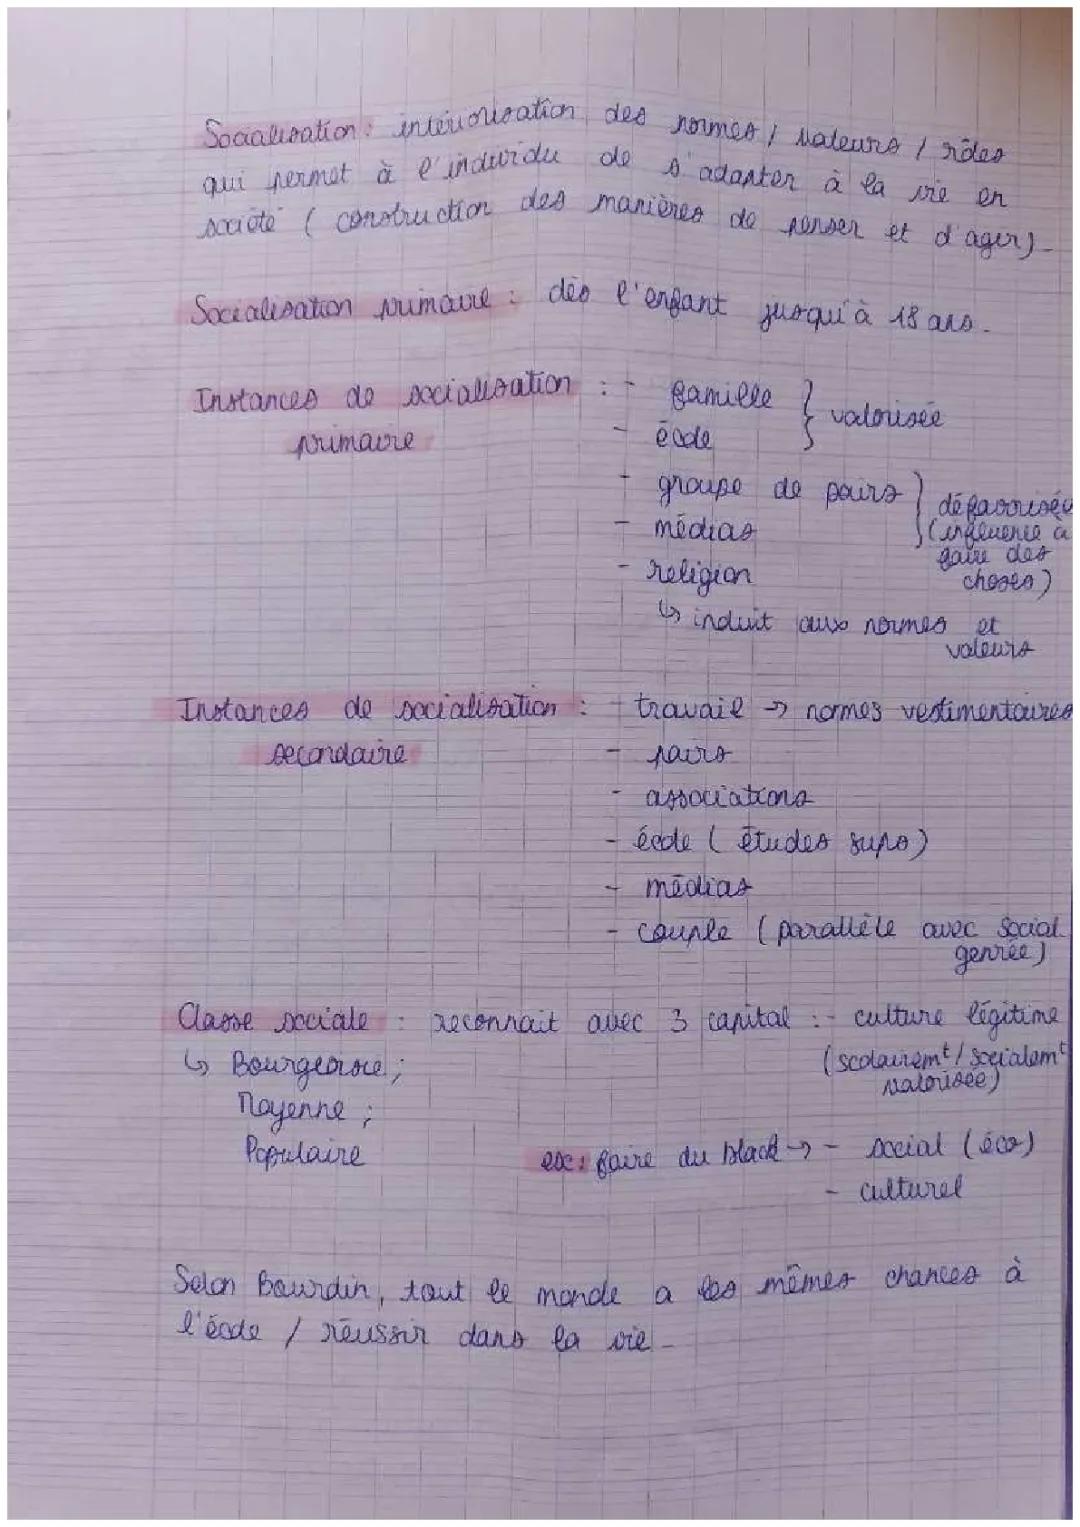 Socialisation : intériorisation des normes / valeurs / rôles
qui permet à l'individu de s'adapter à la vie en
société ( construction des manières de penser et d'agir).
Socialisation primaire : dès l'enfant jusqu'à 18 ans.
Instances de socialisation : - famille } valorisée
primaire - école
- groupe de pairs } défavorisée
- médias (influence à
faire des
choses)
- religion
↳ induit aux normes et
valeurs
Instances de socialisation : - travail → normes vestimentaires
secondaire - pairs
- associations
- école ( études sups)
- médias
- couple ( parallèle avec social
genrée)
Classe sociale : reconnait avec 3 capital : - culture légitime
(scolairemt / socialemt
valorisée)
↳ Bourgeoisie ;
Moyenne ;
Populaire
ex : faire du black → - social (éco)
- culturel
Selon Bourdin, tout le monde a les mêmes chances à
l'école / réussir dans la vie.